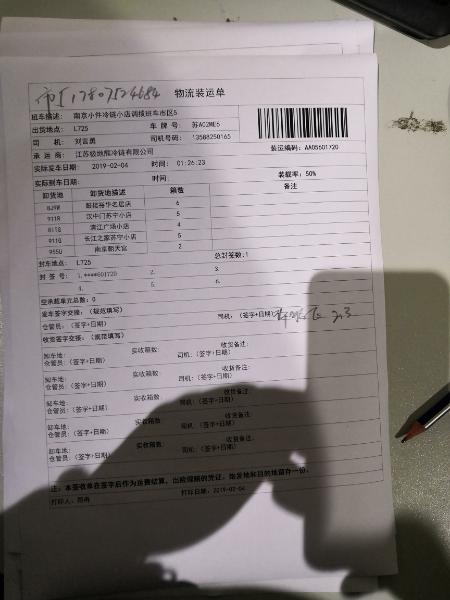 市区17807524684 物流装运单
班车描述: 南京小件冷链小店调拨班车市区5
出货地点: L725 车 牌 号: 苏A02ME6
司 机: 刘言勇 司机号码: 13588250165
承 运 商: 江苏极地熊冷链有限公司 装运编码: AA05601720
实际发车日期: 2019-02-04 时间: 01:26:23
实际到车日期: 时间: 装载率: 50%
卸货地 卸货地描述 箱数 备注
8J9W 裕华名居店 6
911R 汉中门苏宁小店 5
811S 清江广场小店 4
911Q 长江之家苏宁小店 5
955U 南京朝天宫 2
封车地点: L725 总封签数:1
封 签 号: 1.****601720 2. 3.
4. 5. 6.
空承载单元总数: 0
发车签字交接: (规范填写)
仓管员: (签字+日期) 司机: (签字+日期) 2.3
收货签字交接: (规范填写)
卸车地: 实收箱数: 收货备注:
仓管员: (签字+日期) 司机: (签字+日期)
卸车地: 实收箱数: 收货备注:
仓管员: (签字+日期) 司机: (签字+日期)
卸车地: 实收箱数: 收货备注:
仓管员: (签字+日期) 司机: (签字+日期)
卸车地: 实收箱数: 收货备注:
仓管员: (签字+日期) 司机: (签字+日期)
卸车地: 实收箱数: 收货备注:
仓管员: (签字+日期) 司机: (签字+日期)
注: 本签收单在签字后作为运费结算、出险理赔的凭证, 始发地和目的地留存一份。
打印人: 打印日期: 2019-02-04